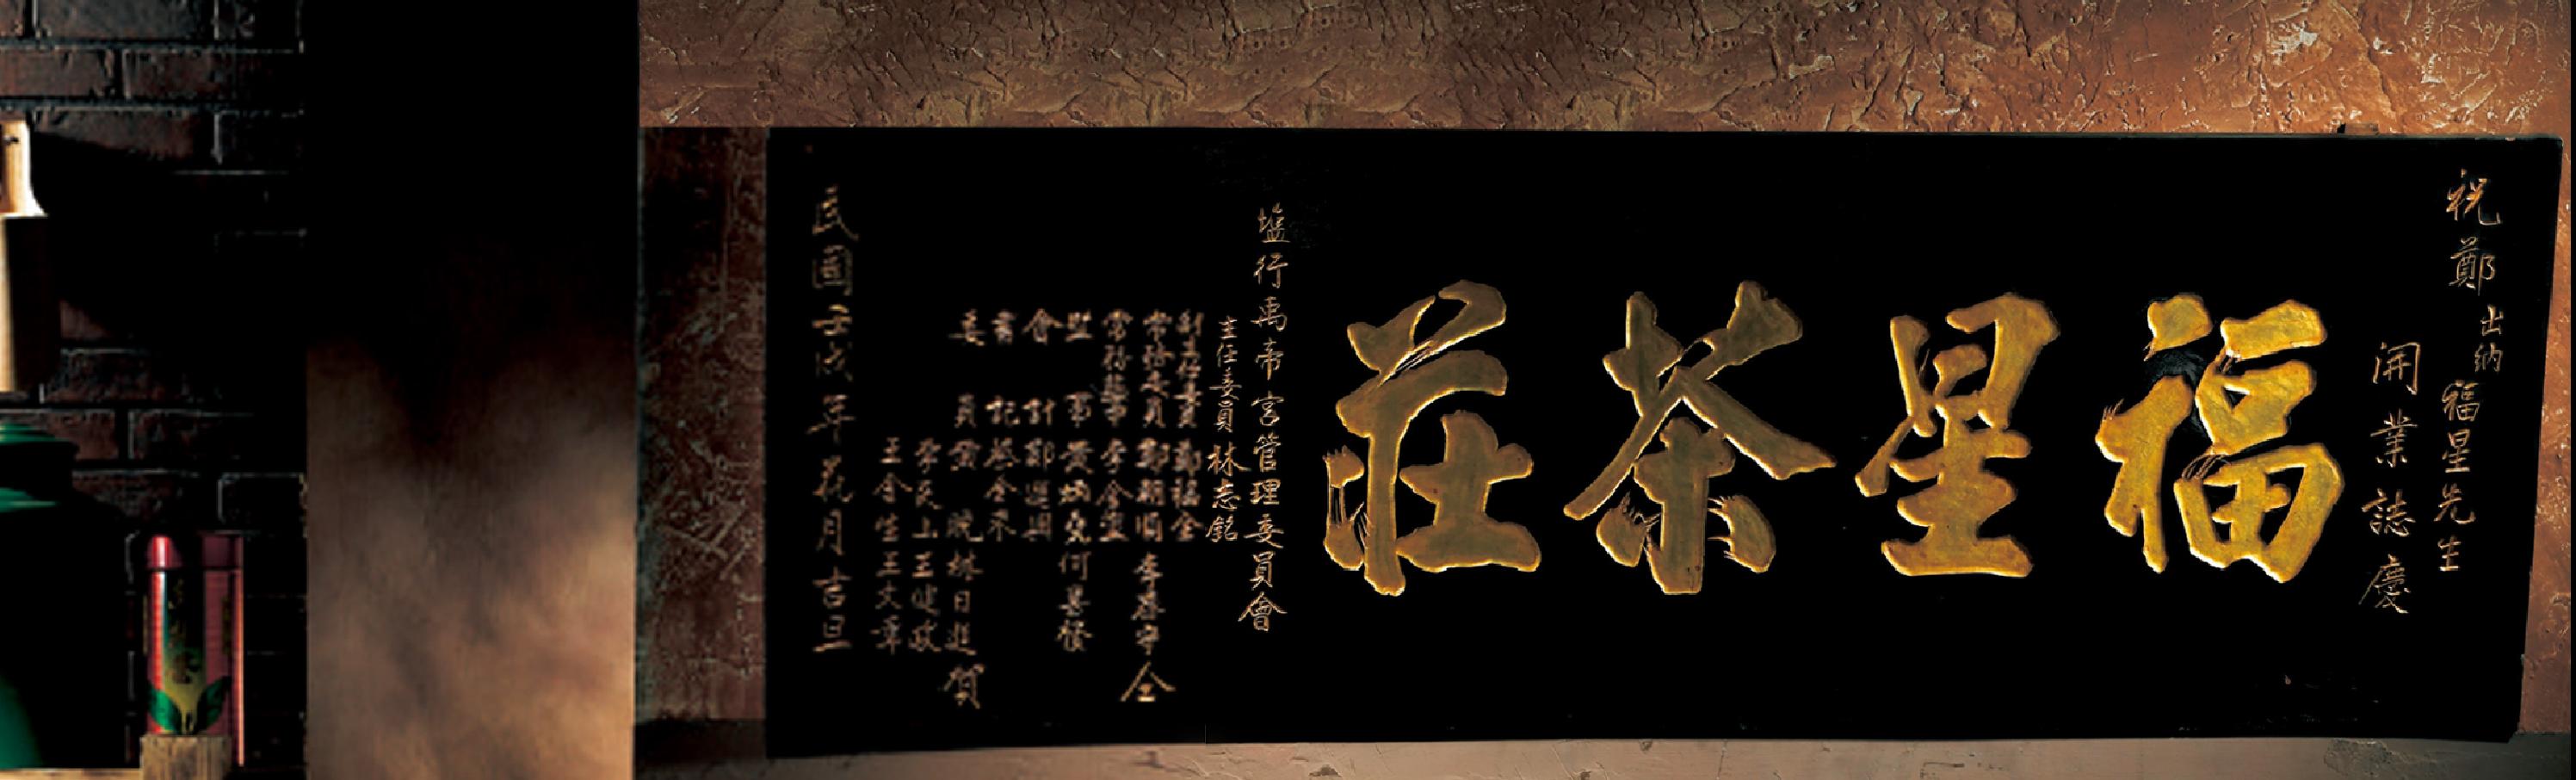 祝鄭出納福星先生
開業誌慶
福星茶莊
塩行禹帝宮管理委員會
主任委員 林志銘
副主任委員 鄭福全
常務委員 鄭朝順 李春守 仝
常務監事 李金
監事 黃炳 何
會計 鄭進
書記 蔡全來
委員 黃 林日 賀
李良山 王健政
王金生 王文章
民國壬戌年花月吉旦